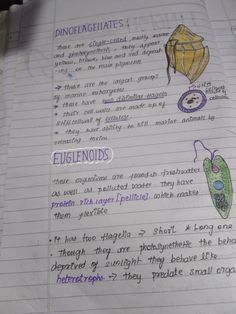 DINOFLAGELLATES
These are single-celled mostly marine
and photosynthetic. They appear
yellow, brown, blue and red depend
-ing on the main pigments
→ these are the largest groups
of marine eukaryotes
→ these have two distinct flagella
→ their cell walls are made up of
stiff cellwall of cellulose.
→ they have ability to kill marine animals by
releasing toxins
EUGLENOIDS
these organisms are found in freshwater
as well as polluted water. They have
protein rich layer [pellicle] which makes
them flexible
• it has two flagella → short * Long one
• Though they are photosynthetic the beha
deprived of sunlight they behave like
heterotrophs → they predate small orga